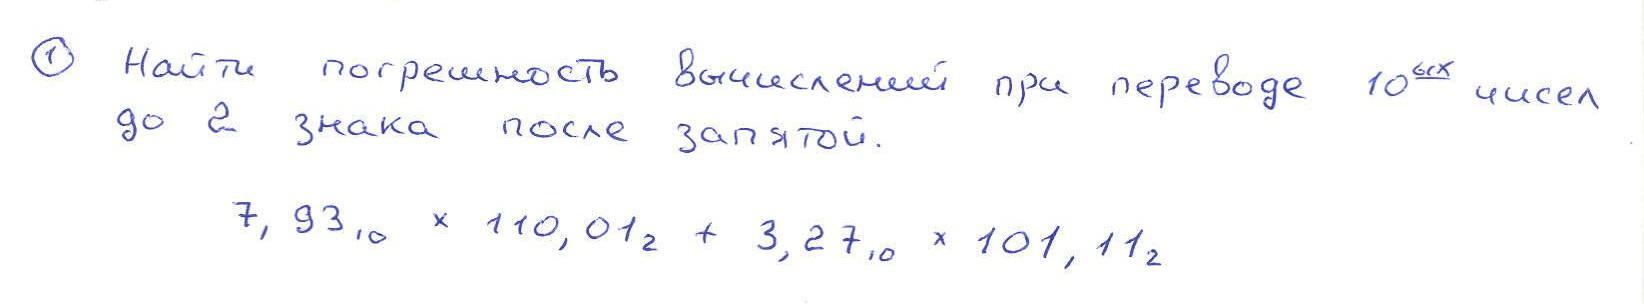 ① Найти погрешность вычислений при переводе 10ых чисел
до 2 знака после запятой.
7,93₁₀ × 110,01₂ + 3,27₁₀ × 101,11₂